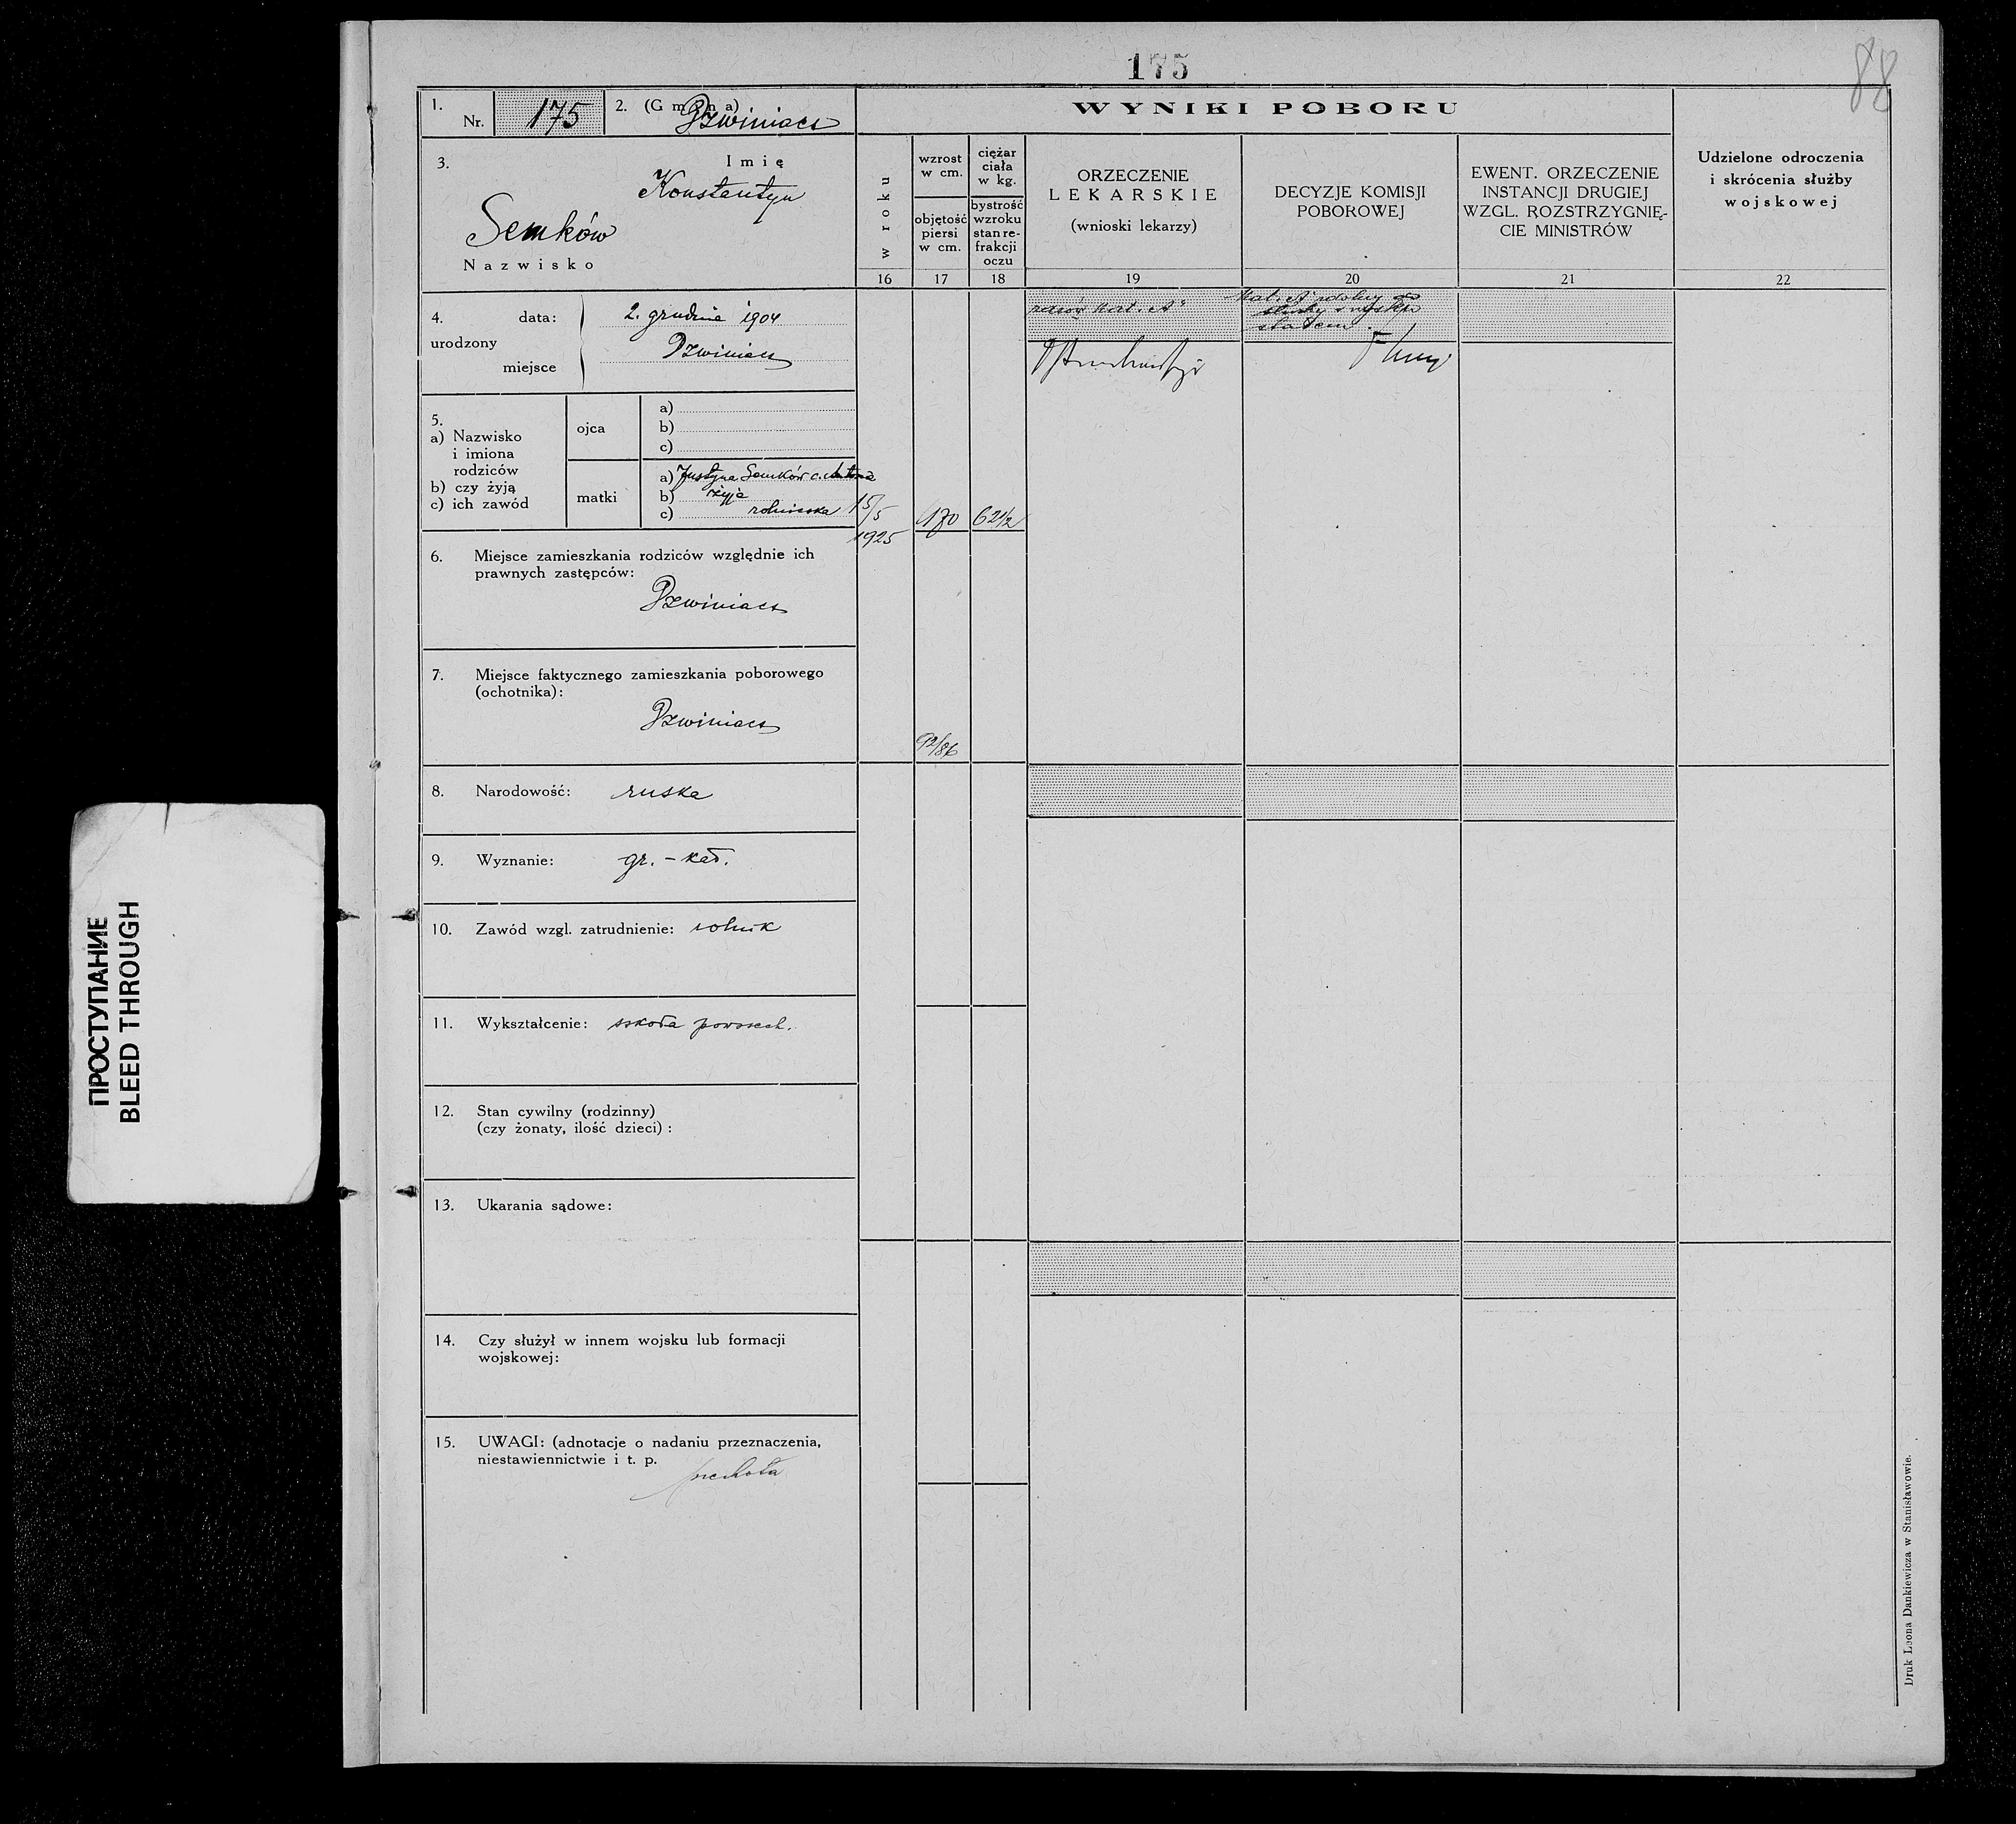 175
88
1.
Nr. 175
2. (Gmina) Dzwiniacz
3. Imię
Konstantyn
Semków
Nazwisko
WYNIKI POBORU
w roku
wzrost w cm.
objętość piersi w cm.
ciężar ciała w kg.
bystrość wzroku stan refrakcji oczu
ORZECZENIE
LEKARSKIE
(wnioski lekarzy)
DECYZJE KOMISJI
POBOROWEJ
EWENT. ORZECZENIE
INSTANCJI DRUGIEJ
WZGL. ROZSTRZYGNIĘ-
CIE MINISTRÓW
Udzielone odroczenia
i skrócenia służby
wojskowej
16 17 18 19 20 21 22
4. data: 2. grudnia 1904
urodzony
miejsce Dzwiniacz
kat. A
Kat. A zdolny do
służby wojsko
5.
a) Nazwisko
i imiona
rodziców
b) czy żyją
c) ich zawód
ojca
a)
b)
c)
matki
a) Justyna Semków c. Antona
b) żyje
c) rolniczka
15/5
1925
170
62 1/2
6. Miejsce zamieszkania rodziców względnie ich
prawnych zastępców:
Dzwiniacz
7. Miejsce faktycznego zamieszkania poborowego
(ochotnika):
Dzwiniacz
92/86
8. Narodowość: ruska
9. Wyznanie: gr. - kat.
10. Zawód wzgl. zatrudnienie: rolnik
11. Wykształcenie: szkoła powszech.
12. Stan cywilny (rodzinny)
(czy żonaty, ilość dzieci) :
13. Ukarania sądowe:
14. Czy służył w innem wojsku lub formacji
wojskowej:
15. UWAGI: (adnotacje o nadaniu przeznaczenia,
niestawiennictwie i t. p.
piechota
Druk Leona Dankiewicza w Stanisławowie.
ПРОСТУПАНИЕ
BLEED THROUGH